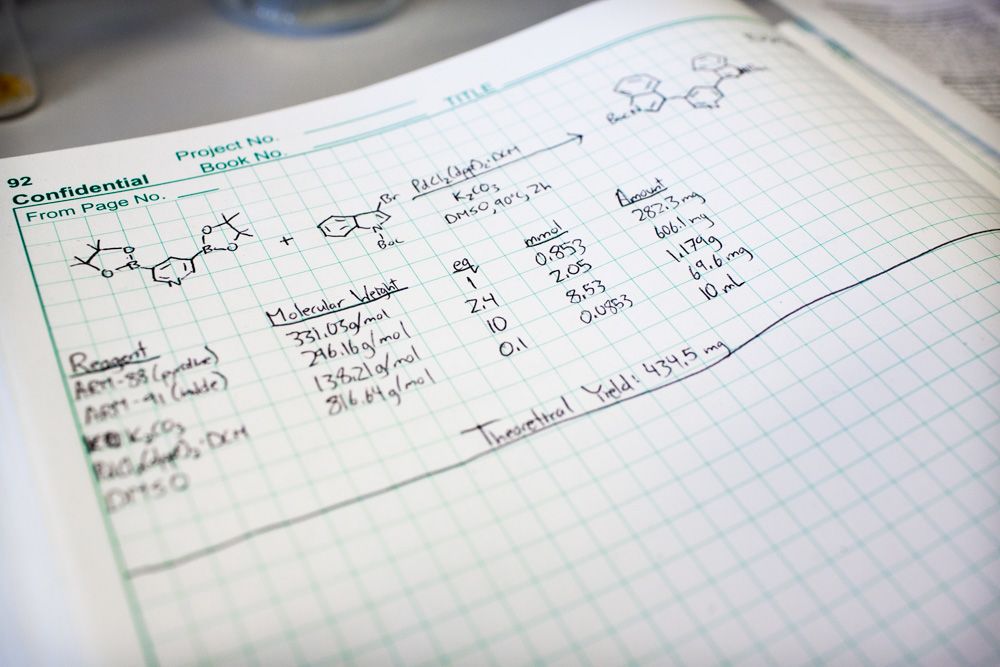 TITLE
Project No.
Book No.
92
Confidential
From Page No.
O O B O O B N + Br N Boc
PdCl2(dppf)2·DCM
K2CO3
DMSO, 90°C, 2h
Reagent Molecular Weight eq mmol Amount
ARM-88 (pyridine) 331.03g/mol 1 0.853 282.3 mg
ARM-91 (indole) 296.16g/mol 2.4 2.05 606.1 mg
K2CO3 138.21g/mol 10 8.53 1.179g
PdCl2(dppf)2·DCM 816.64g/mol 0.1 0.0853 69.6 mg
DMSO 10 mL
Theoretical Yield: 434.5 mg